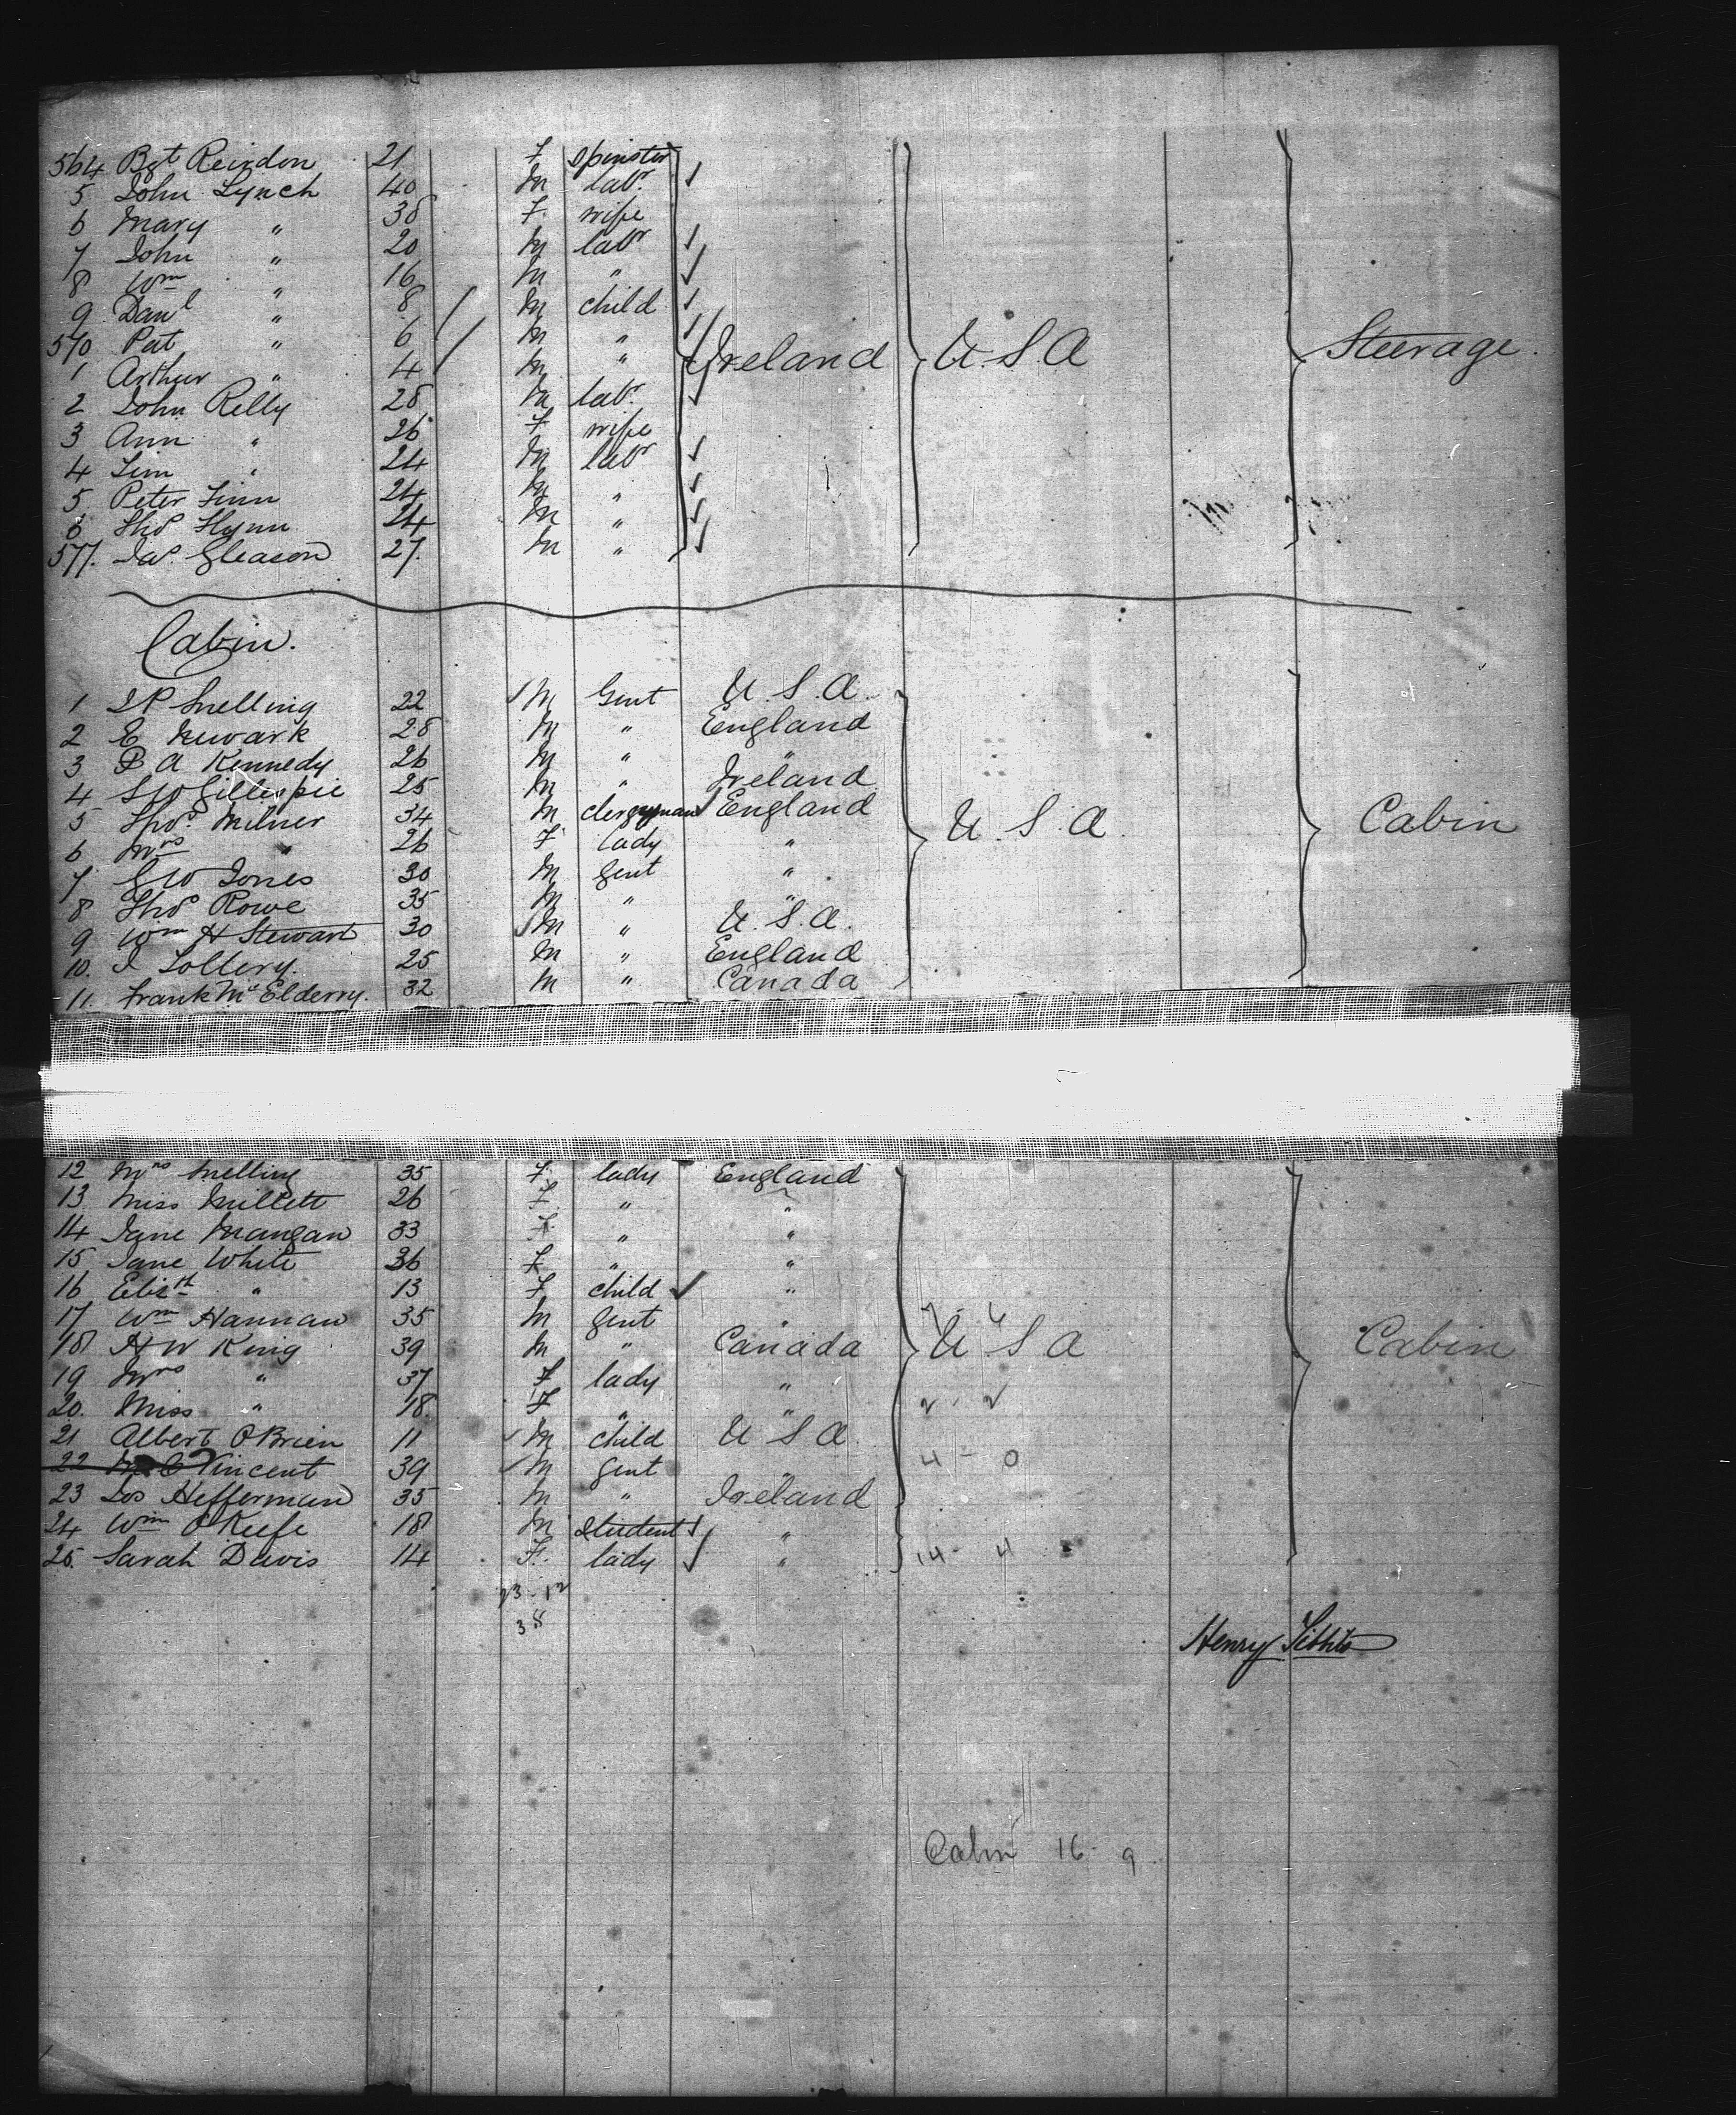 564 Bgt Reirdon 21 F Spinster
5 John Lynch 40 M labr
6 Mary " 38 F wife
7 John " 20 M labr
8 Wm " 16 M "
9 Danl " 8 M child
570 Pat " 6 M " Ireland U.S.A Steerage.
1 Arthur " 4 M "
2 John Relly 28 M labr
3 Ann " 26 F wife
4 Jim " 24 M labr
5 Peter Finn 24 M "
6 Thos Flynn 24 M "
577. Jas. Gleason 27. M "
Cabin.
1 J P Snelling 22 M Gent U.S.A.
2 E Newark 28 M " England
3 P A Kennedy 26 M " "
4 S W Gillespie 25 M " Ireland
5 Thos. Milner 34 M clergyman England U.S.A. Cabin
6 Mrs " 26 F lady "
7 G W Jones 30 M Gent "
8 Thos Rowe 35 M " "
9 Wm H Stewart 30 M " U.S.A.
10. J Lottery. 25 M " England
11. Frank McElderry. 32 M " Canada
12 Mrs Melling 35 F. lady England
13. Miss Millett 26 F. " "
14 Jane Mangan 33 F. " "
15 Jane White 36 F " "
16 Elizth " 13 F child "
17 Wm Hannan 35 M Gent "
18 H W King 39 M " Canada U S A Cabin
19 Mrs " 37 F lady "
20. Miss " 18 F " "
21 Albert O'Brien 11 M child U S A.
22 Vincent 39 M Gent "
4 - 0
23 Jos Hefferman 35 M " Ireland
24 Wm O'Keefe 18 M Student "
25. Sarah Davis 14 F. lady "
14 - 4
38
Henry Tibbits
Cabin 16 - 9